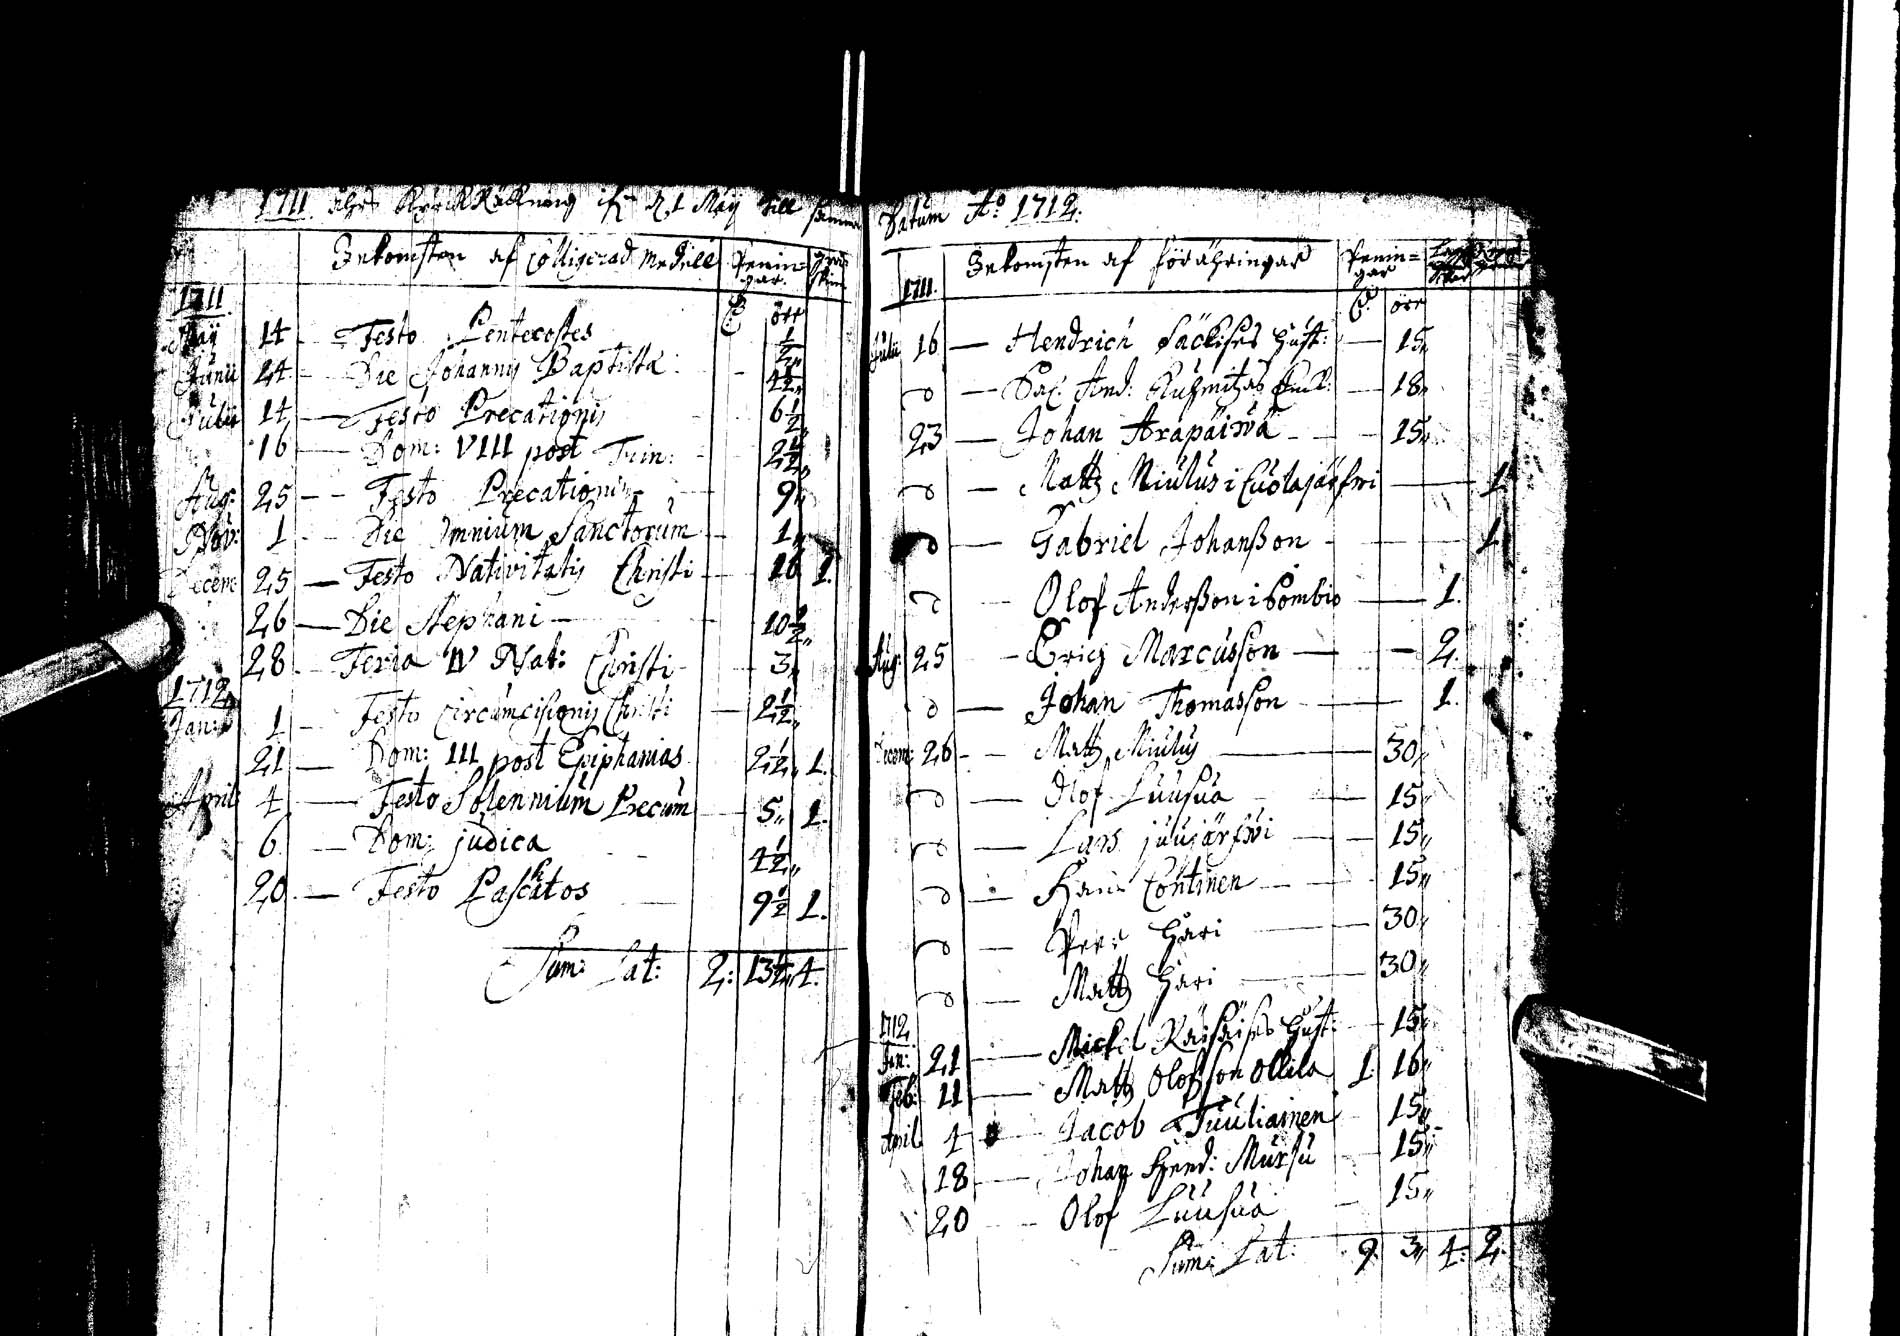 1711 åhrs KyrckRäkning ifr. d. 1 Maij till samma
Inkomsten af Colligerad Medell Penin=gar.
1711
öre
Maij 14 — Festo Pentecostes ½
Junii 24 — Die Johannis Baptistæ 4½
Julii 14 — Festo Precationis 6½
16 — Dom: VIII post Trin: 2½
Aug: 25 — Festo Precationis 9
Nov: 1 — Die Omnium Sanctorum 1
Decem: 25 — Festo Nativitatis Christi 16 1.
26 — Die Stephani — 10½
28 — Feria IV Nat: Christi 3
1712
Jan: 1 — Festo Circumcisionis Christi — 2½
21 — Dom: III post Epiphanias 2½ 1.
April 4 — Festo Solennium Precum — 5 1.
6 — Dom: judica 4½
20 — Festo Paschatos 9½ 1.
Sum: Lat: 2: 13½ 4.
Datum A:o 1712.
1711. Inkomsten af förähringar Penin=gar
öre
Julii 16 — Hendrich Hust: — 15
23 — Johan Arapäiwä — 15
Matts Miulus i Cuolajärfwi — 1
Gabriel Johansson — 1
Olof Andersson i Sombio — 1.
Aug: 25 — Erich Marcusson — 2.
Johan Thomasson — 1.
Decem: 26 — Matts Miulus — 30
Olof Luusua — 15
Lars juujärfwi — 15
Hans Continen — 15
Peer Hari — 30
Matts Hari — 30
1712
Jan: 21 — Mickel Räisäises Hust: — 15
Feb: 11 — Matts Olofsson Ollila 1. 16
April 4 — Jacob Tuuliainen 15
18 — Johan Hend: Mursu 15
20 — Olof Luusua — 15
Sum: Lat: 9. 3 4: 2.